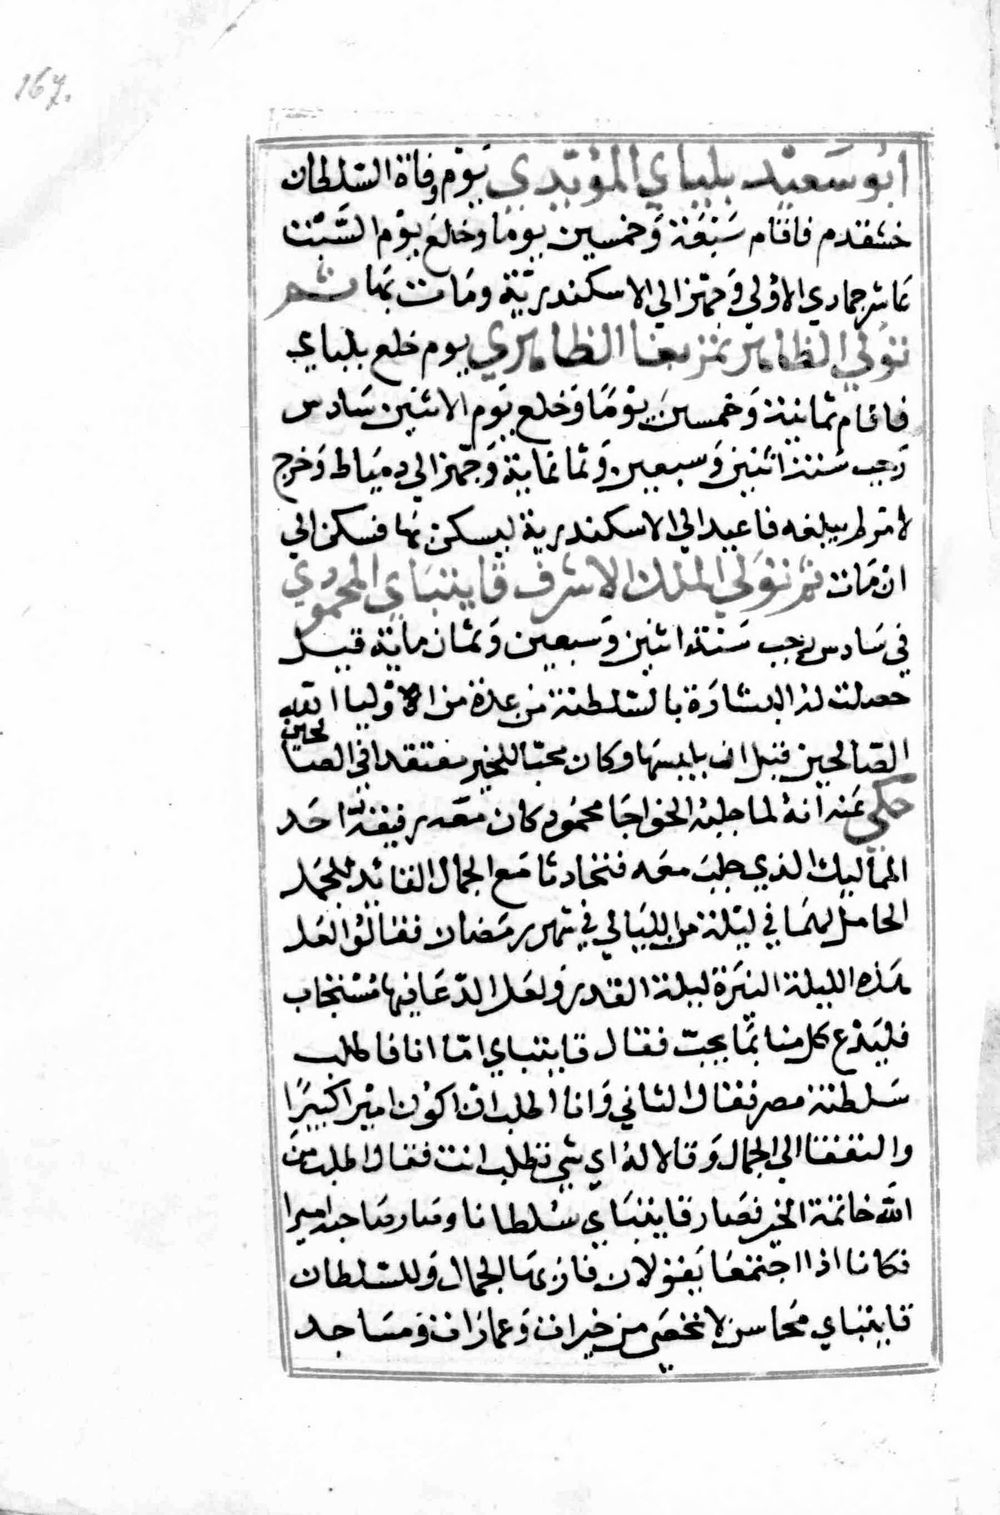 167.
ابو سَعيْد بلباي المؤيّدي يَوْم وفاة السّلطان
خشقدم فاقام سَبْعَة وَخمسين يوما وخلعَ يوْم السَّبْت
عَاشر جمادي الاوْلي وَجهّز الي الاسكندريّة ومَات بهَا ثم
توَلي الظاهر تمزبغا الظاهري يوم خلع بلباي
فاقام ثمانية وَخمسين يوْمَا وَخلع يَوم الاثنين سَادس
رَجب سنة اثنين وَسبعين وَثمانماية وَجهّز الي دميَاط وَخرج
لامر لم يبلغه فاعيد الي الاسكندرية ليسكن بها فسكن الي
ان مَات ثم توَلي الملك الاشرف قايتبَاي المحموُدي
في سَادس رجب سَنة اثنين وَسبعين وَثمان ماية قيل
حصلت لهُ البشارَة بالسّلطنة من عدة من الاوْليا الله
الصّالحين قبل ان يلبسهَا وكان محبّا للخير معتقدا في الصالحين
حكي عَنه انهُ لما جلبهُ الخواجَا محمُود كان معَه رفيقهٌ احَد
المماليك الذي جلبَ معه فتحادثا مَع الجمال القائد للجمَل
الحامل لهمَا في ليْلة من الليَالي في شهر رمَضان فقالوُا لعَل
هَذه الليلة النيّرة ليلة القدر وَلعَل الدّعَا فيها مُسْتجَاب
فليَدْع كل منا بمَا يحبّ فقال قايتباي امّا انا فاطلب
سَلطنة مصر فقال الثاني وَانا اطلب ان اكوُن اميْرا كبيْرًا
والتفتا الي الجمال وَقالا لهُ اي شي تطلب انت فقال اطلب منَ
الله خاتمة الخير فصَار قايتبَاي سُلطانا وصَار صَاحبهُ اميرا
فكانا اذا اجتمعَا يَقوْلان فاز بهَا الجمال وَللسّلطان
قايتبَاي محَاسن لا تحْصَى من خيرات وَعمارَات وَمسَاجد